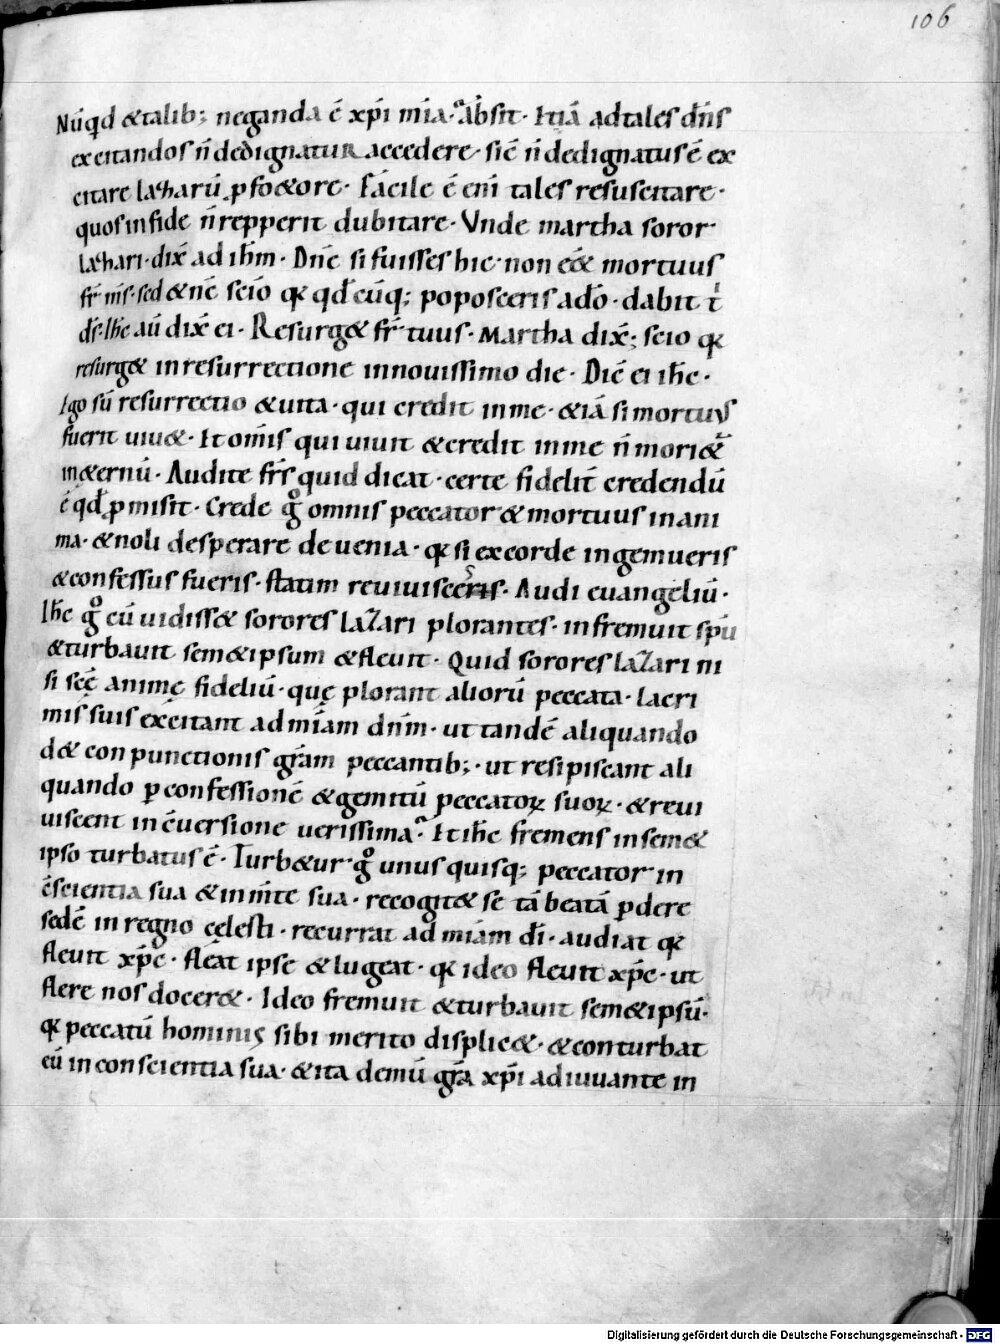 106
Nūqd &talib; neganda ē xp̄i mīa. absit. Etiā ad tales dn̄s
excitandos n̄ dedignatur accedere. sic̄ n̄ dedignatus ē ex
citare lazharū p̱ fo&ore. Facile ē eni tales resuscitare.
quos in fide n̄ repperit dubitare. Unde martha soror
lazhari. dix̄ ad ih̄m. Dn̄e si fuisses hic. non eē& mortuus
fr̄ m̄s. sed & nc̄ scio qꝛ qd̄cūq; poposceris a dō. dabit t̄
ds̄. Ih̄c aū dix̄ ei. Resurg& fr̄ tuus. Martha dix̄; scio qꝛ
resurg& in resurrectione in novissimo die. Dic̄ ei ih̄c.
Ego sū resurrectio & uita. qui credit in me. &iā si mortuus
fuerit uiu&. Et om̄is qui uiuit & credit in me n̄ mori&̄
in &ernū. Audite fr̄s quid dicat. certe fidelit̄ credendū
ē qd̄ ꝓmisit. Crede gͦ omnis peccator & mortuus in ani
ma. & noli desperare de uenia. qꝛ si ex corde ingemueris
& confessus fueris. statim reuiuisceris. Audi euangeliū.
Ih̄c gͦ cū uidiss& sorores lazari plorantes. infremuit spū
& turbauit sem&ipsum & fleuit. Quid sorores lazari ni
si sc̄ę animę fideliū. quę plorant aliorū peccata. lacri
mis suis excitant ad mīam dn̄m. ut tandē aliquando
d& conpunctionis grām peccantib;. ut resipiscant ali
quando ꝑ confessionē & gemitū peccatoꝝ suoꝝ. & reui
uiscent in c̄uersione uerissima. Et ih̄c fremens in sem&
ipso turbatus ē. Turb&ur gͦ unusquisq; peccator in
c̄scientia sua & in m̄te sua. recogit& se tā beatā ꝑdere
sedē in regno celesti. recurrat ad mīam dī. audiat qꝛ
fleuit xp̄c. fleat ipse & lugeat. qꝛ ideo fleuit xp̄c. ut
flere nos docer&. Ideo fremuit & turbauit sem&ipsū.
qꝛ peccatū hominis sibi merito displic&. & conturbat
eū in conscientia sua. & ita demū grā xp̄i adiuuante in
Digitalisierung gefördert durch die Deutsche Forschungsgemeinschaft - DFG